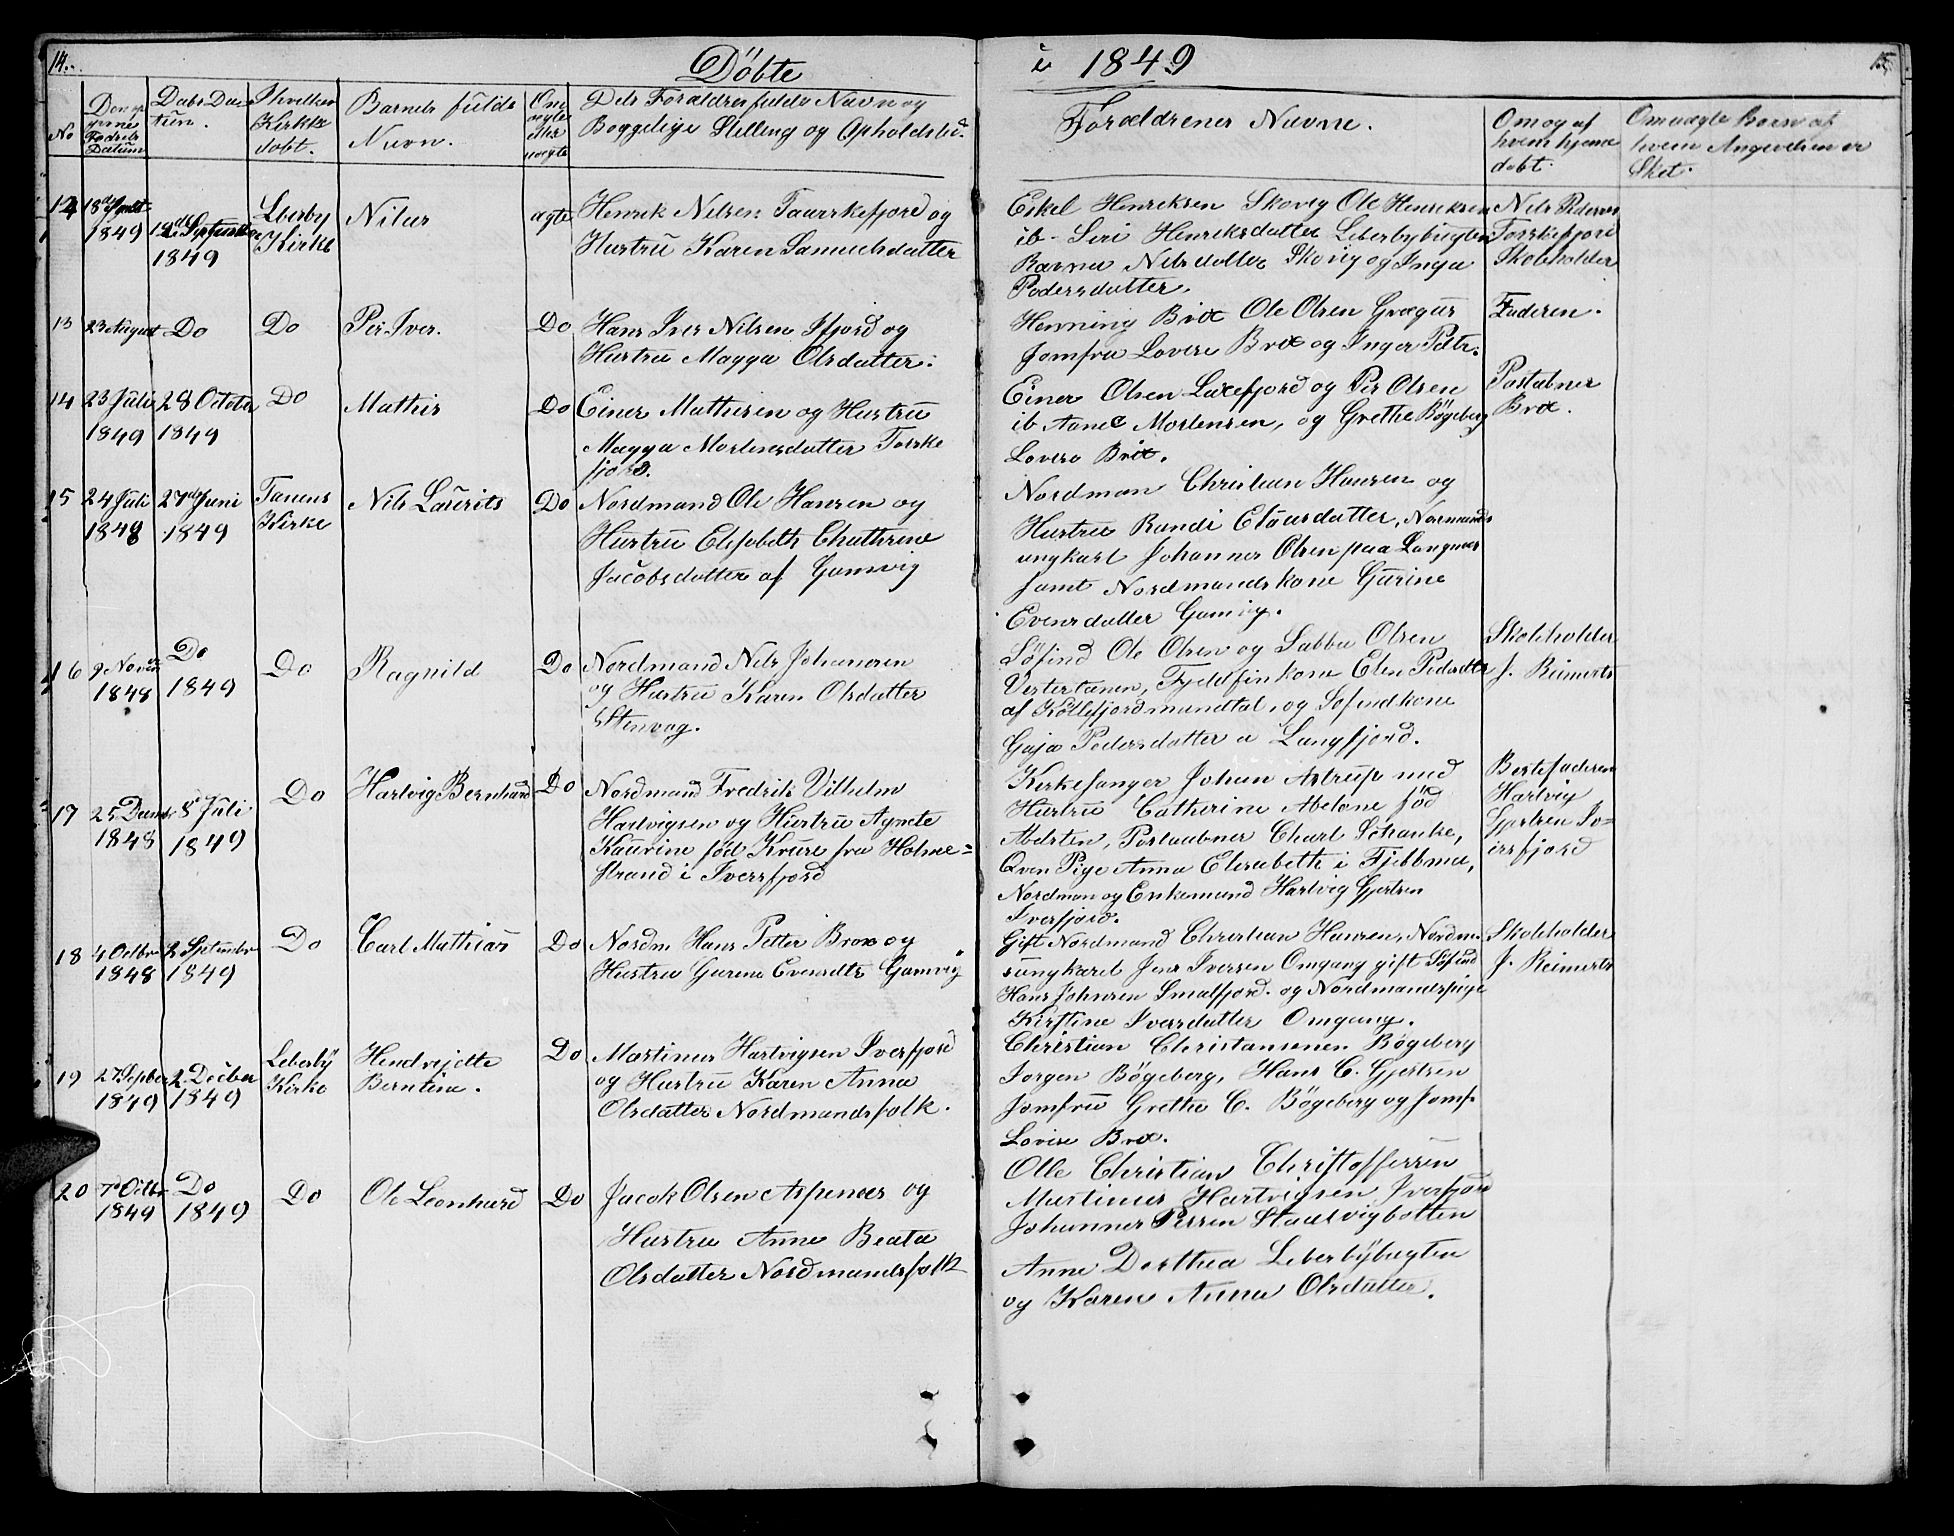 14.
Döbte
i 1849
15
No
Fødsels
Datum
Daabs Da-
tum.
I hvilken
Kirke
döbt.
Barnets fulde
Navn.
Om
ægte
eller
uægte
Dets Forældres fulde Navn og
Borgelige Stilling og Opholdsted
Forældrenes Navne.
Om og af
hvem hjemme
döbt.
Om uægte Barn af
hvem Angivelsen er
Sket.
12
1849
1849
Leberby
Kirke
Nilas
ægte
Henrik Nilsen Taarskefjord og
Hustrü Karen Samuelsdatter
Eskel Henriksen Skovig Ole Henriksen
ib. Siri Henriksdatter Leberbybugten
Ravna Nilsdatter Skovig og Inga
Pedersdatter.
Nils Pedersen
Torskefjord
Skoleholder
13
23 August
Do
Do
Per Iver.
Do
Hans Iver Nilsen Ifjord og
Hustru Magga Olsdatter.
Henning Brox Ole Olsen Grægus
Jomfru Lovise Brox og Inger Petr.
Faderen.
14
23 Juli
1849
28 October
1849
Do
Mathis
Do
Einer Mathisen og Hustrü
Magga Mortensdatter Torske
fjord.
Einer Olsen Laxefjord og Per Olsen
ib Aane Mortensen, og Grethe Bögeberg
Lovise Brox.
Postabner
Brox.
15
24 Juli
1848
27de Juni
1849
Tanens
Kirke
Nils Laürits
Do
Nordmand Ole Hansen og
Hustrü Elisebeth Chathrine
Jacobsdatter af Gamvig
Nordman Christian Hansen og
Hustrue Randi Elausdatter, Normands
ungkarl Johannes Olsen paa Langnæs
samt Nordmandskone Gürine
Evensdatter Gamvig.
16
9 Novbr
1848
Do
1849
Do
Ragnild
Do
Nordmand Nils Johansen
og Hustrü Karen Olsdatter
Stenvag.
Söfind Ole Olsen og Sabba Olsen
Vestertanen, Fjeldfinkone Elen Pedersdtr
af Köllefjordmandtal, og Söfindkone
Gaja Pedersdatter a Langfjord.
Skoleholder
J. Reimerts
17
25 Decmbr
1848
8 Juli
1849
Do
Hartvig Bernhard
Do
Nordmand Fredrik Vilhelm
Hartvigsen og Hüstrü Agnete
Kaurine föd Kruse fra Holme=
strand i Iversfjord
Kirkesanger Johan Astrup med
Hustrü Catherine Abelone föd
Abelsten, Postaabner Charl Schanke,
Qven Pige Anna Elisabeth i Fjebbma,
Nordman og Enkemand Hartvig Gjertsen
Iverfjord.
Bestefaderen
Hartvig
Gjertsen Iv=
ersfjord
18
4 Octbr
1848
2 Septembr
1849
Do
Carl Mathias
Do
Nordm. Hans Petter Brox og
Hustru Gurine Evensdtr Gamvig
Gift Nordmand Christian Hansen, Nordm
süngkarel Jens Iversen Omgang gift Söfind
Hans Johnsen Smalfjord. og Nordmandspige
Kirstine Iversdatter Omgang.
Skoleholder
J. Reimerts
19
27 Septber
1849
2 Decber
1849
Leberby
Kirke
Hendrejette
Berntine.
Do
Martinus Hartvigsen Iverfjord
og Hustrü Karen Anna
Olsdatter Nordmandsfolk.
Christian Christansenen Bögeberg
Jorgen Bögeberg, Hans C. Gjertsen
Jomfrü Grethe C. Bögeberg og Jomf
Lovise Brox.
20
1849
Do
1849
Do
Ole Leonhard
Do
Jacok Olsen Aspenæs og
Hustru Anne Beata
Olsdatter Nordmandsfolk
Olle Christian Christoffersen
Martinus Hartvigsen Iverfjord
Johannes Persen Staalvigbotten
Anne Dorthea Leberbybugten
og Karen Anna Olsdatter.